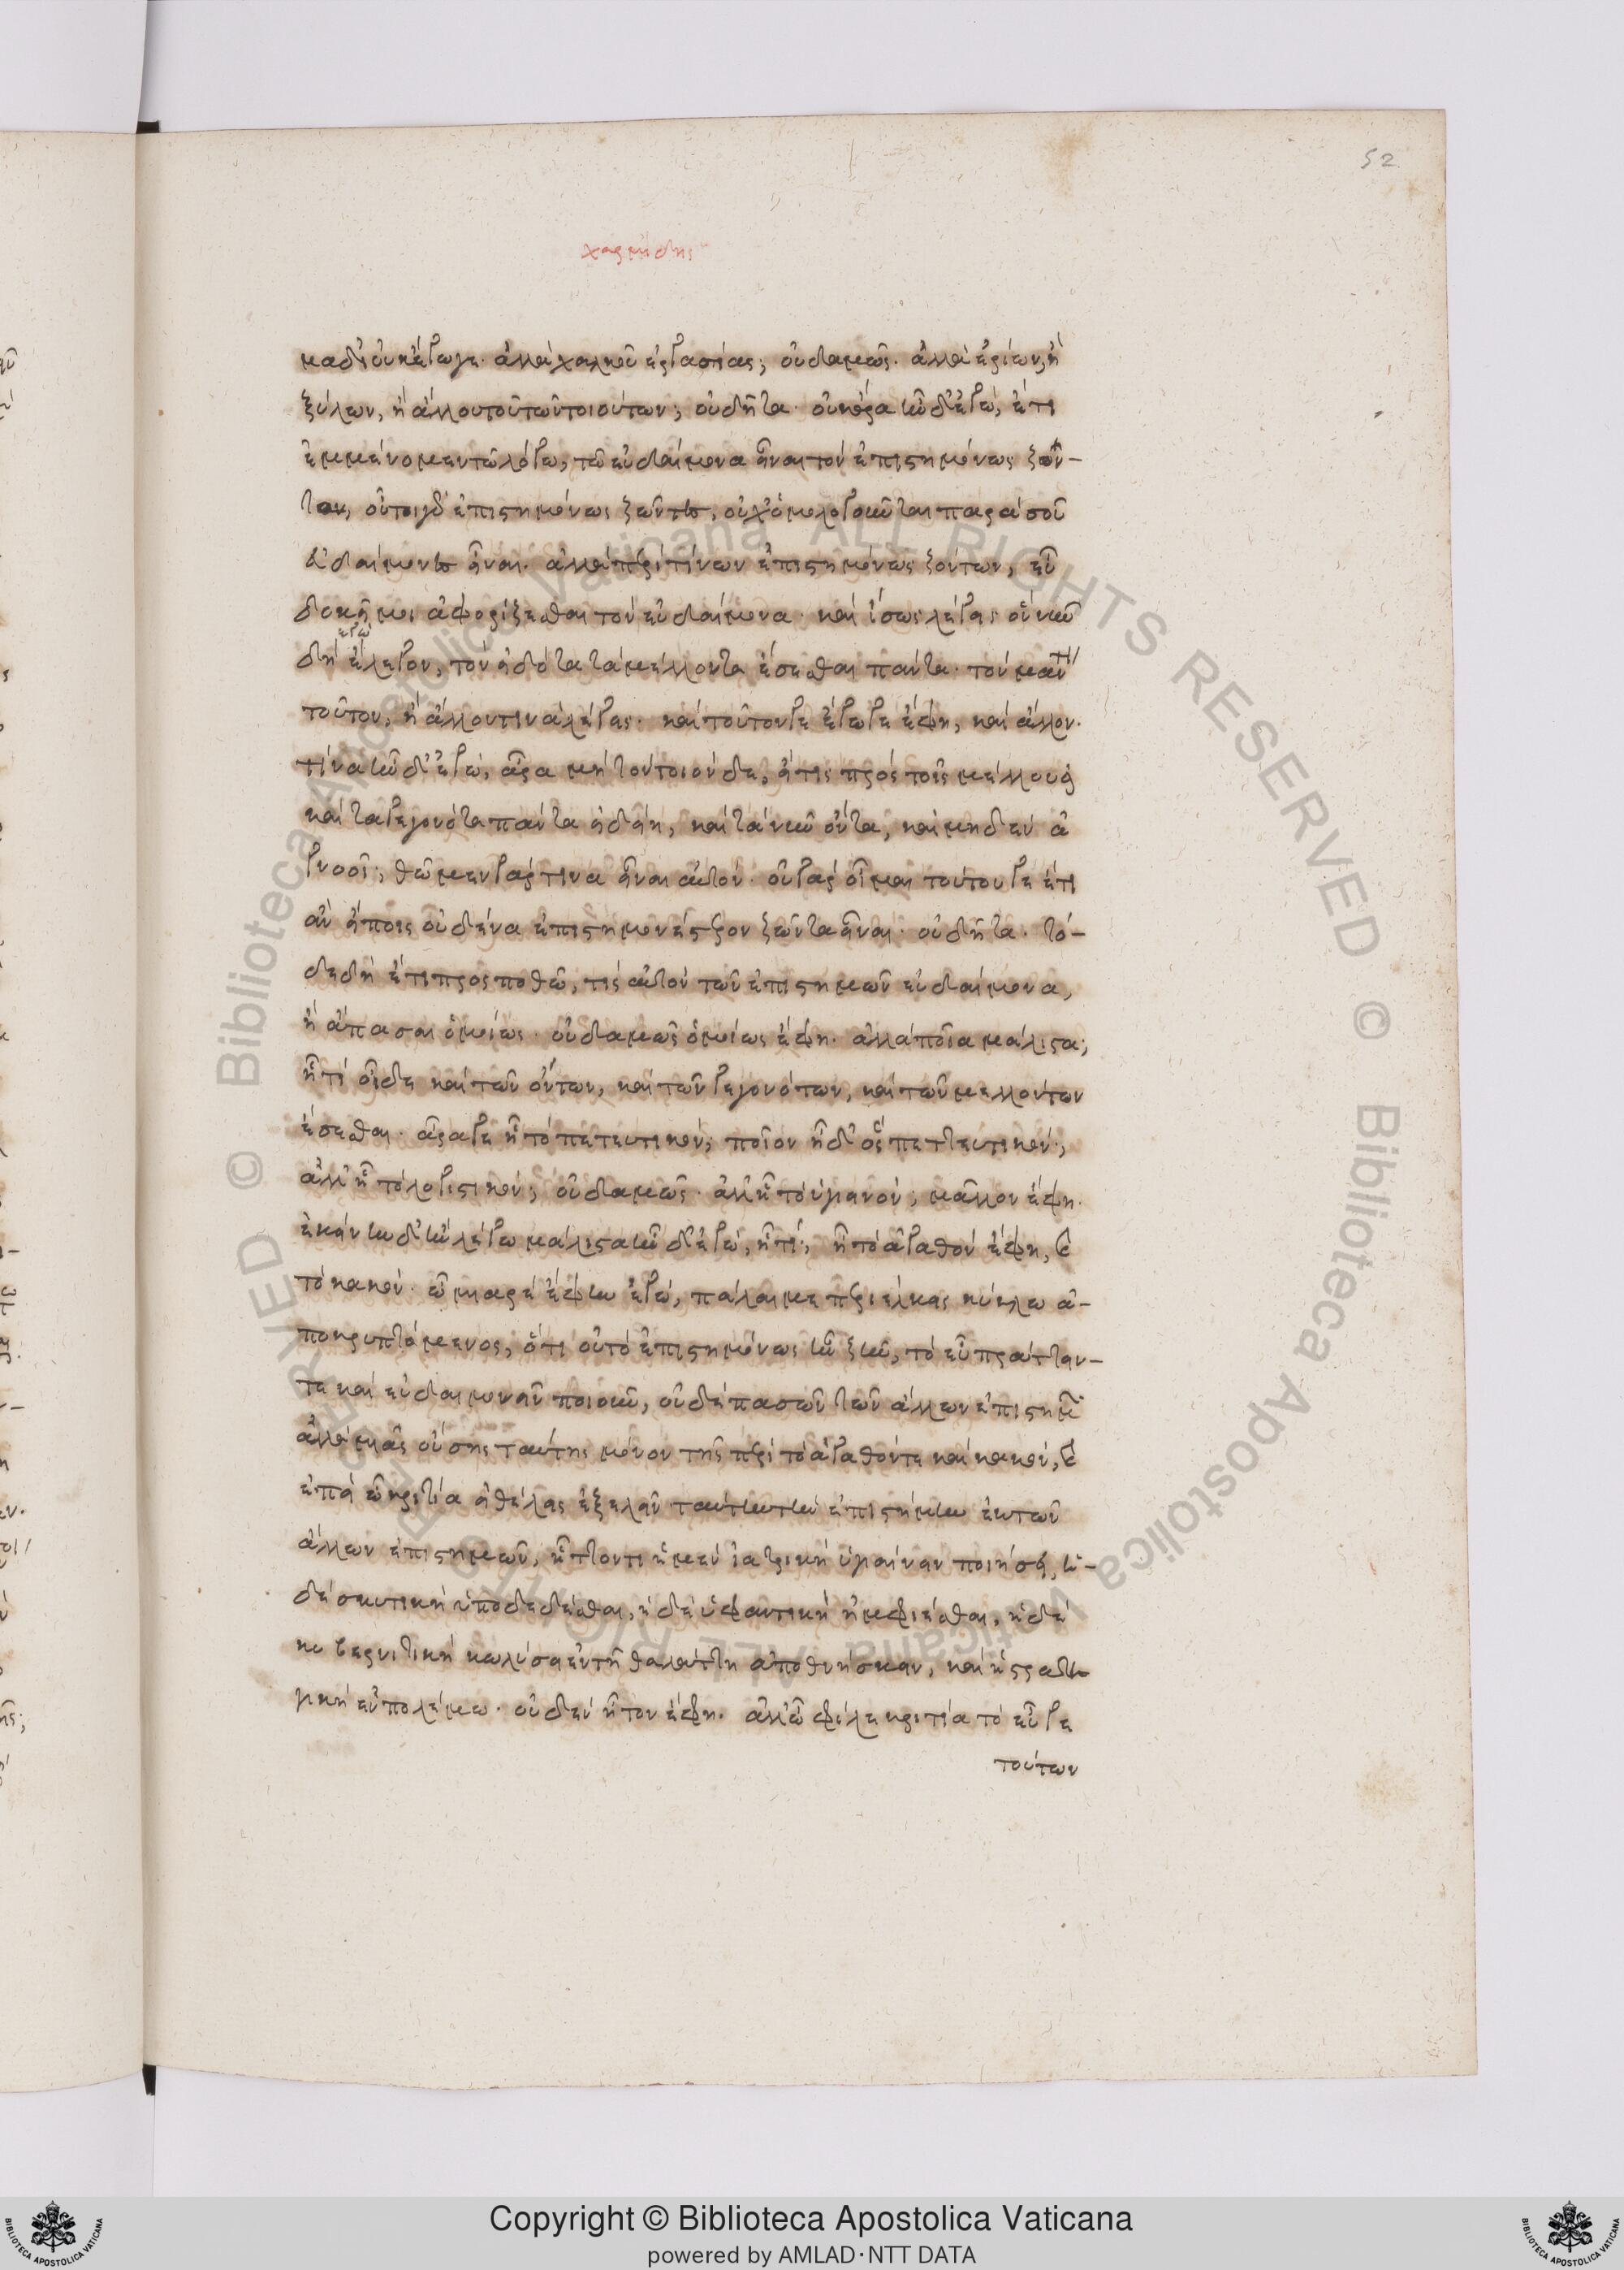 52
χαρμίδης
μὰ δί' οὐκ ἔγωγε. ἀλλὰ χαλκοῦ ἐργασίας; οὐδαμῶς. ἀλλὰ ἐρίων, ἢ
ξύλων, ἢ ἄλλου του τῶν τοιούτων; οὐ δῆτα. οὐκ ἄρα ἦν δ' ἐγώ, ἔτι
ἐμμένομεν τῶ λόγω, τῶ εὐδαίμονα εἶναι τὸν ἐπιστημόνως ζῶν-
τα, οὗτοι γὰρ ἐπιστημόνως ζῶντες, οὐχ ὁμολογοῦνται παρὰ σοῦ
εὐδαίμονες εἶναι. ἀλλὰ περί τινων ἐπιστημόνως ζώντων, εὖ
δοκεῖ μοι ἀφορίζεσθαι τὸν εὐδαίμονα. καὶ ἴσως λέγεις ὃν νῦν
δὴ ἐγὼ ἔλεγον, τὸν εἰδότα τὰ μέλλοντα ἔσεσθαι πάντα. τὸν μάντι
τοῦτον, ἢ ἄλλον τινα λέγεις. καὶ τοῦτον γε ἔγωγε ἔφη, καὶ ἄλλον.
τίνα ἦν δ' ἐγώ, ἆρα μὴ τὸν τοιόνδε, εἴ τις πρὸς τοῖς μέλλουσι
καὶ τὰ γεγονότα πάντα εἰδείη, καὶ τὰ νῦν ὄντα, καὶ μηδὲν ἀ
γνοοῖ; θῶμεν γάρ τινα εἶναι αὐτόν. οὐ γὰρ οἶμαι τούτου γε ἔτι
ἂν εἴποις οὐδένα ἐπιστημονέστερον ζῶντα εἶναι. οὐ δῆτα. τό-
δε δὴ ἔτι προσποθῶ, τίς αὐτὸν τῶν ἐπιστημῶν εὐδαίμονα,
ἢ ἅπασαι ὁμοίως. οὐδαμῶς ὁμοίως ἔφη. ἀλλὰ ποῖα μάλιστα;
ἧ τί οἶδε καὶ τῶν ὄντων, καὶ τῶν γεγονότων, καὶ τῶν μελλόντων
ἔσεσθαι. ἆρά γε ἧ τὸ πετευτικόν; ποῖον ἦ δ' ὃς πεττευτικόν;
ἀλλ' ἧ τὸ λογιστικόν; οὐδαμῶς. ἀλλ' ἧ τὸ ὑγιεινόν; μᾶλλον ἔφη.
ἐκείνην δ' ἣν λέγω μάλιστα ἦν δ' ἐγώ, ἧ τί; ἧ τὸ ἀγαθὸν ἔφη, καὶ
τὸ κακόν. ὦ μιαρὲ ἔφην ἐγώ, πάλαι με περιέλκεις κύκλω ἀ-
ποκρυπτόμενος, ὅτι οὐ τὸ ἐπιστημόνως ἦν ζῆν, τὸ εὖ πράττειν-
τε καὶ εὐδαιμονεῖν ποιοῦν, οὐδὲ πασῶν τῶν ἄλλων ἐπιστημῶν
ἀλλὰ μιᾶς οὔσης ταύτης μόνον τῆς περὶ τὸ ἀγαθόν τε καὶ κακόν, καὶ
ἐπεὶ ὦ κριτία εἰ θέλεις ἐξελεῖν ταύτην τὴν ἐπιστήμην ἐκ τῶν
ἄλλων ἐπιστημῶν, ἧττόν τι ἡ μὲν ἰατρικὴ ὑγιαίνειν ποιήσει, ἡ-
δὲ σκυτικὴ ὑποδεδέσθαι, ἡ δὲ ὑφαντικὴ ἠμφιέσθαι, ἡ δὲ
κυβερνιτικὴ κωλύσει ἐν τῆ θαλάττη ἀποθνήσκειν, καὶ ἡ στρατη
γικὴ ἐν πολέμω. οὐδὲν ἧττον ἔφη. ἀλλ' ὦ φίλε κριτία τὸ εὖ γε
τούτων